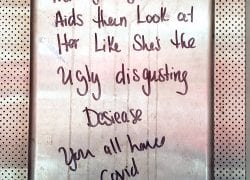 Aids then Look at
Her Like She's the
Ugly disgusting
Dosiease
You all have
Covid